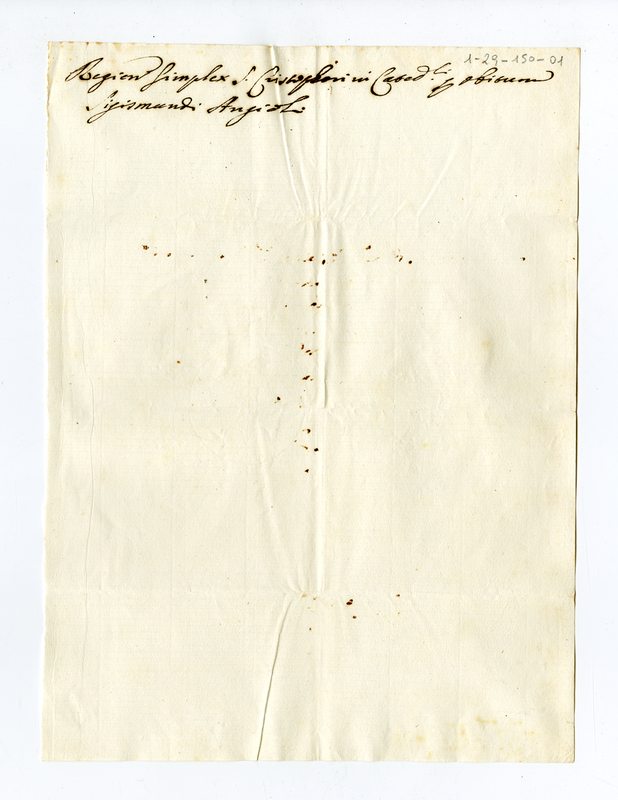 1-29-150-01
simplex S. Cristophori in Cated.li p obitum
Sigismundi Angioli